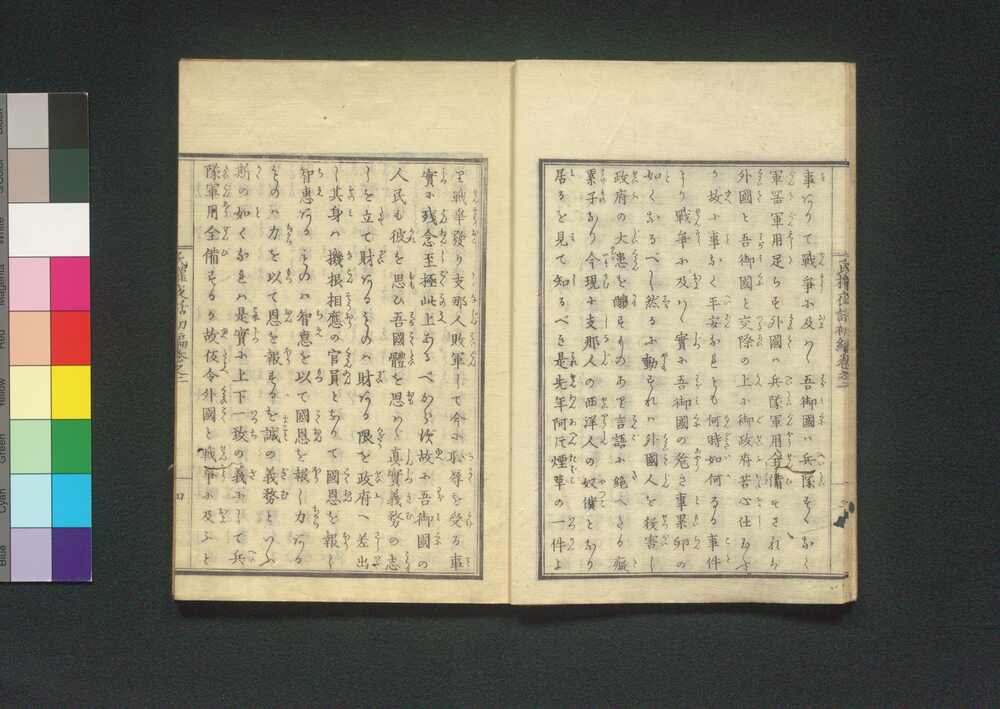 事ありて戦争に及バヽ吾御國ハ兵隊すくなく
軍器軍用足らず外國ハ兵隊軍用全備せざれバ
外國と吾御國と交際の上に御政府苦心仕給ふ
が故に事なく平安なれども何時如何なる事件
より戦争に及バヽ實に吾御國の危き事累卵の
如くなるべし然るに動もすれバ外國人を殺害し
政府の大患を醸すものあり言語に絶へたる癡
累子なり今現に支那人の西洋人の奴僕となり
居るを見て知るべき是先年阿片煙草の一件よ
り戦争發り支那人敗軍して今に耻辱を受る事
實に残念至極此上あるべからず故に吾御國の
人民も彼を思ひ吾國體を思ハヾ真實義務の志
しを立て財あるものハ財ある限を政府へ差出
し其身ハ機根相應の官員となりて國恩を報じ
智恵あるものハ智恵を以て國恩を報じ力ある
ものハ力を以て國恩を報ずるを誠の義務といふ
斯の如くなれバ是實に上下一致の義にして兵
隊軍用全備するが故仮令外國と戦争に及ぶと
初編巻之二
四